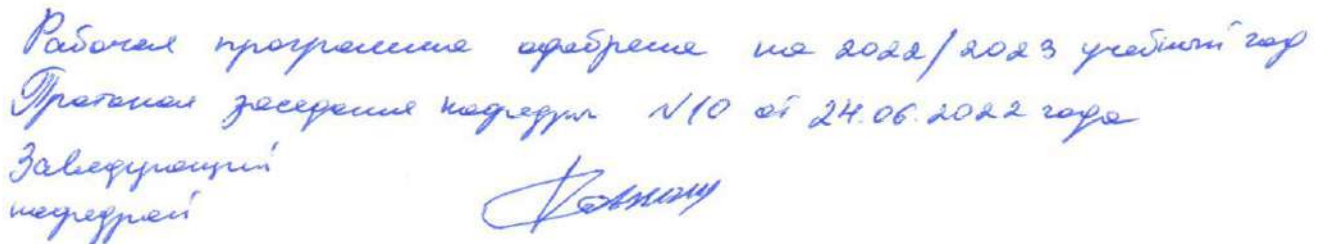 Рабочая программа одобрена на 2022/2023 учебный год
Протокол заседания кафедры №10 от 24.06.2022 года
Заведующий
кафедрой